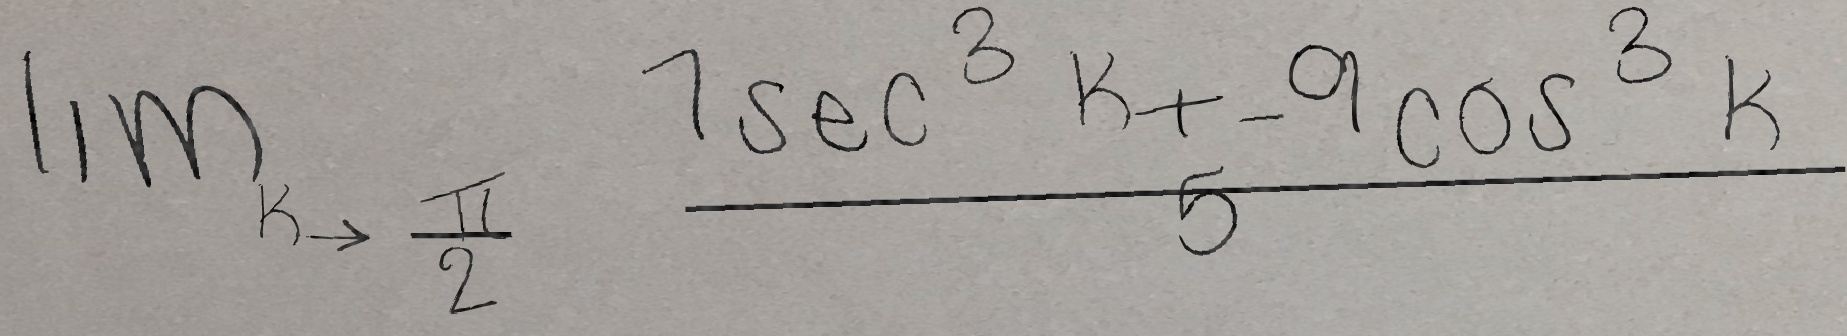 lim_{k→\frac{π}{2}} \frac{7sec^3 k+-9cos^3 k}{5}